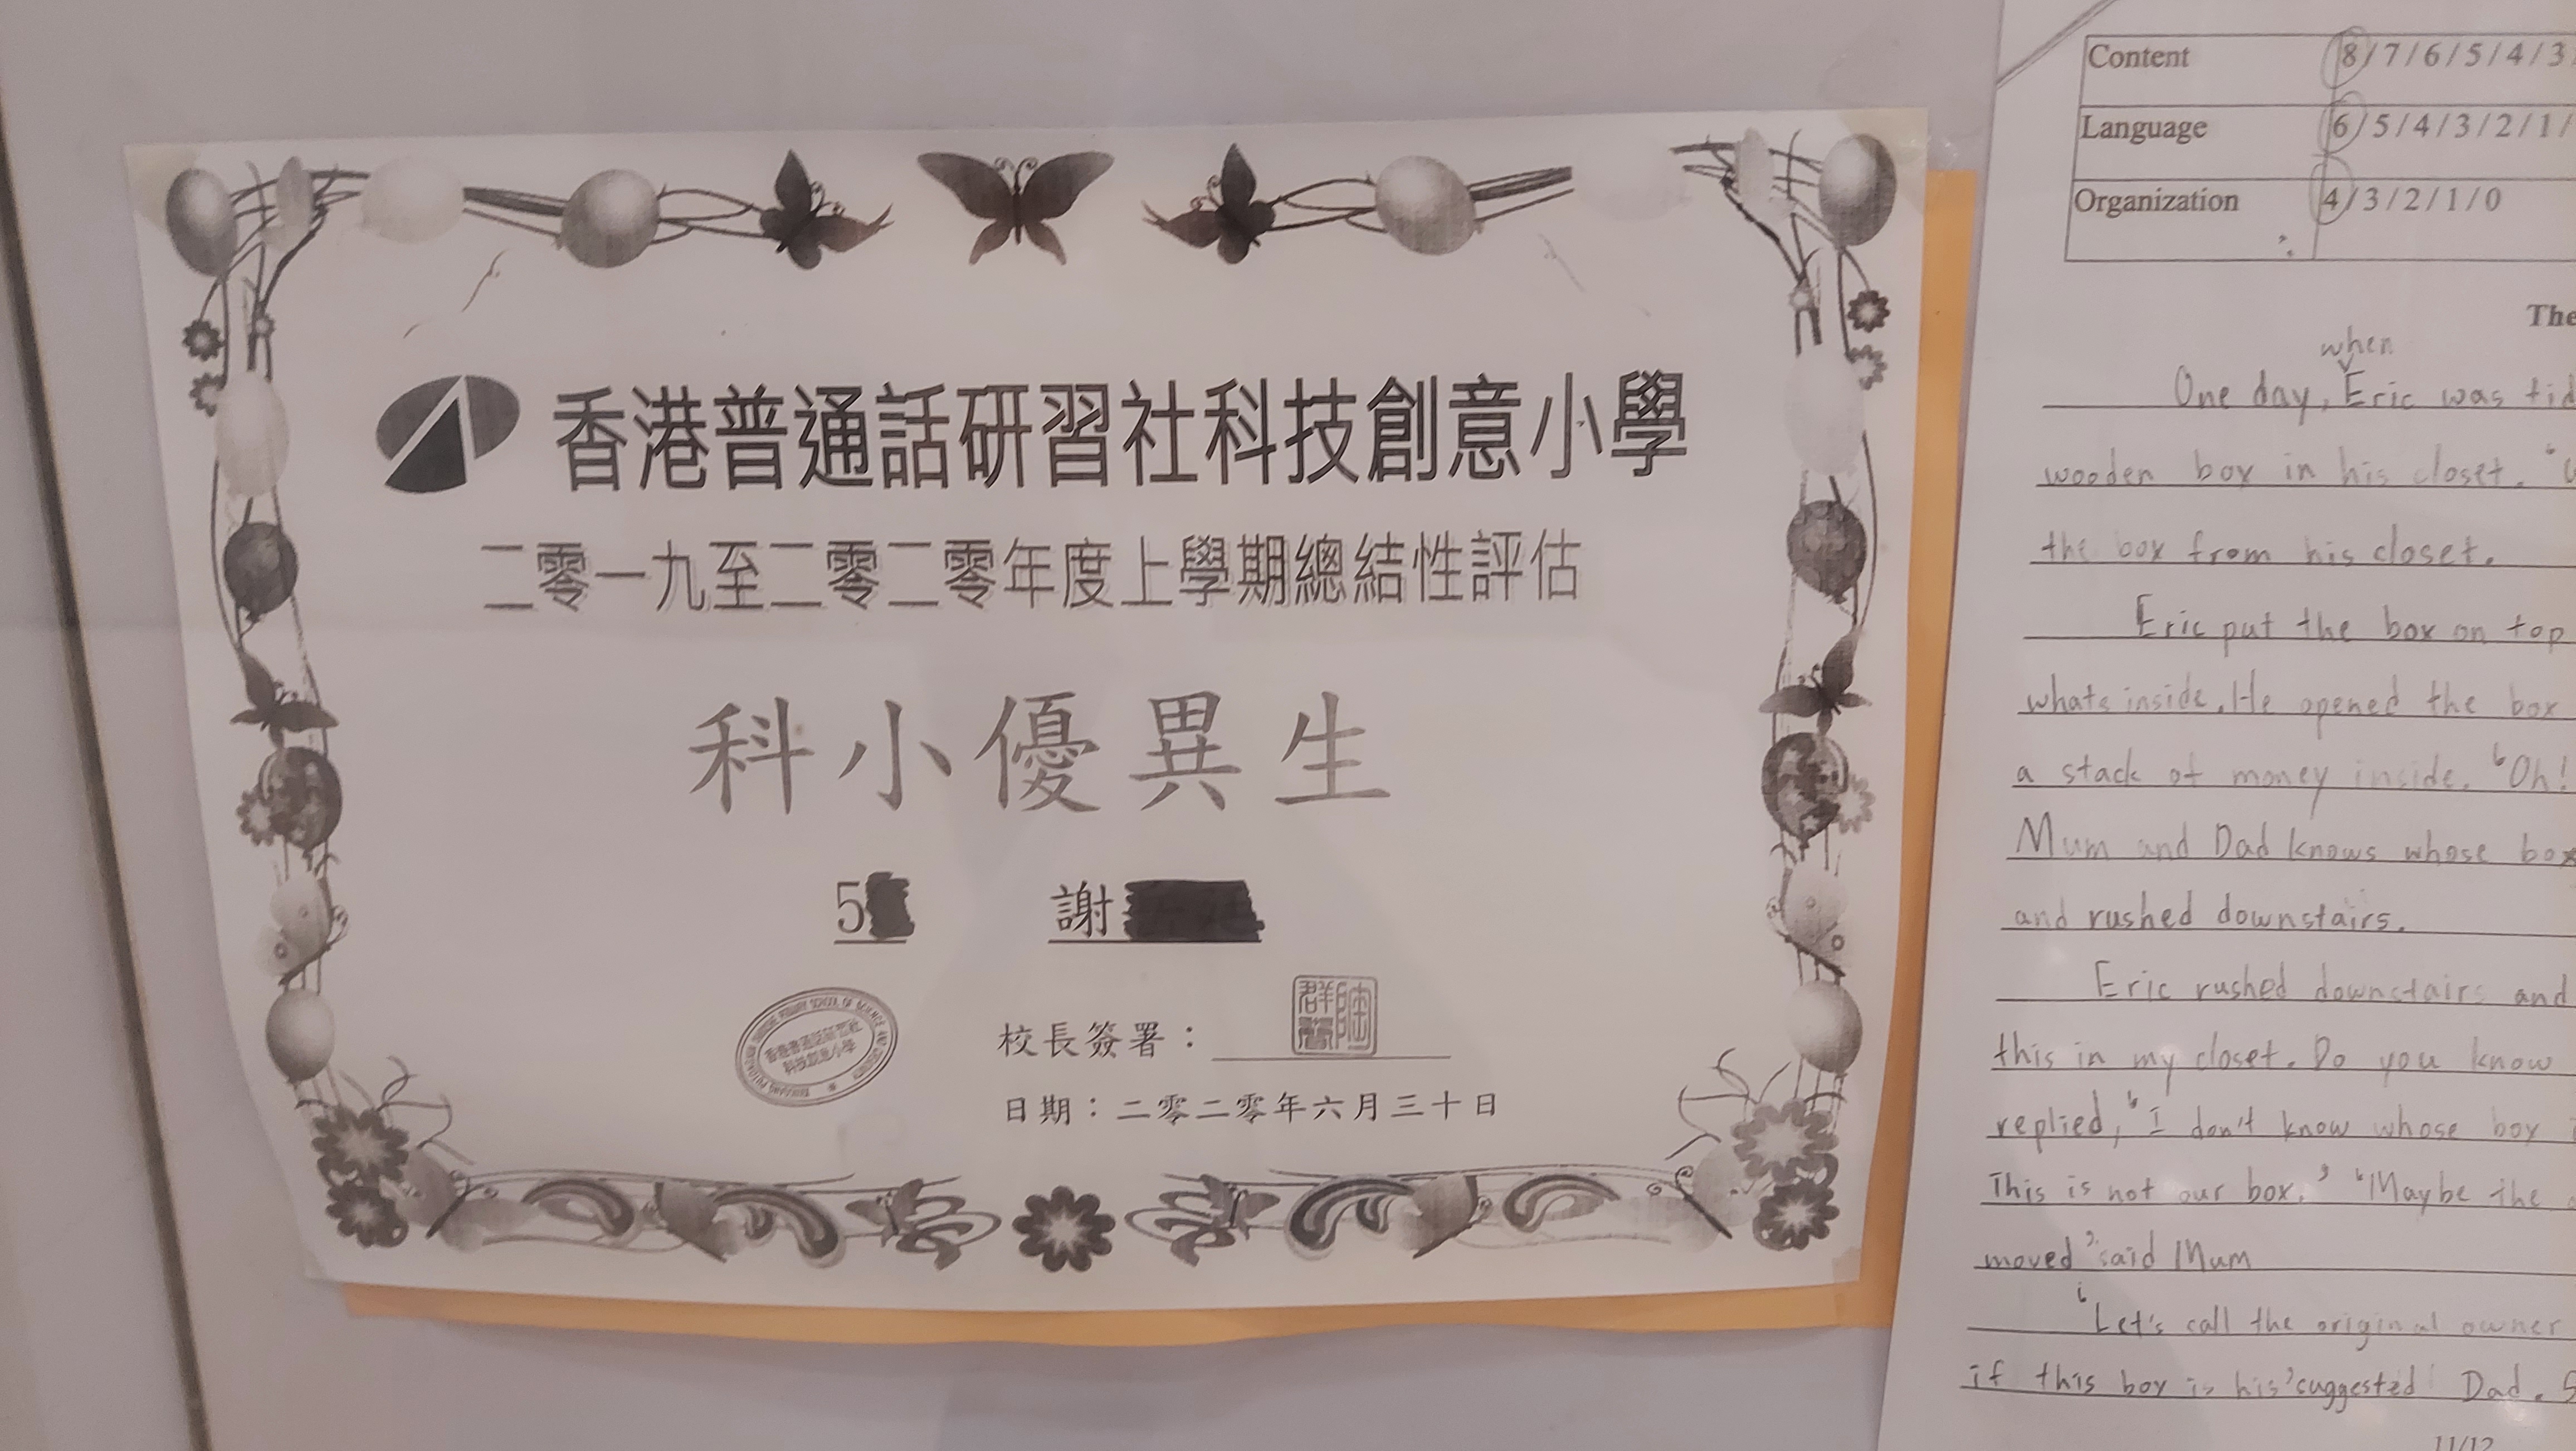 香港普通話研習社科技創意小學
二零一九至二零二零年度上學期總結性評估
科小優異生
5
謝
香港普通話研習社
科技創意小學
校長簽署：
群陶
日期：二零二零年六月三十日
Content 8/7/6/5/4/3
Language 6/5/4/3/2/1/
Organization 4/3/2/1/0
The
when
One day, Eric was tid
wooden box in his closet. "
the box from his closet.
Eric put the box on top
whats inside. He opened the box
a stack of money inside. "Oh!
Mum and Dad knows whose box
and rushed downstairs.
Eric rushed downstairs and
this in my closet. Do you know
replied, "I don't know whose box
This is not our box." "Maybe the
moved" said Mum
"Let's call the original owner
if this box is his" suggested Dad. S
11/12